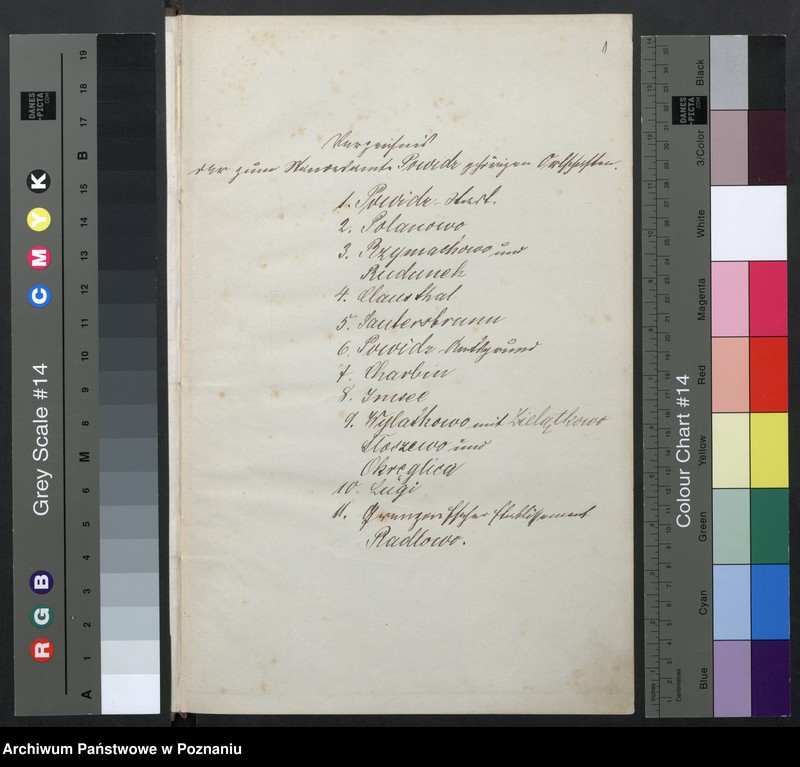 1
Verzeichnis
der zum Standesamte Powidz gehörigen Ortschaften.
1. Powidz-Stadt.
2. Polanowo
3. Rzymachowo und
Rudunek
4. Clausthal
5. Sautersbrunn
6. Powidz-Amtsgrund
7. Charbin
8. Imsee
9. Wylatkowo mit Zielątkowo
Storzewo und
Okręglica
10. Ługi
11. Etablissement
Radłowo.
DANES
-PICTA
.COM
Grey Scale #14
R G B
C M Y K
A 1 2 3 4 5 6 M 8 9 10 11 12 13 14 15 B 17 18 19
DANES
-PICTA
.COM
Colour Chart #14
Inches
Centimetres
Blue
Cyan
Green
Yellow
Red
Magenta
White
3/Color
Black
Archiwum Państwowe w Poznaniu